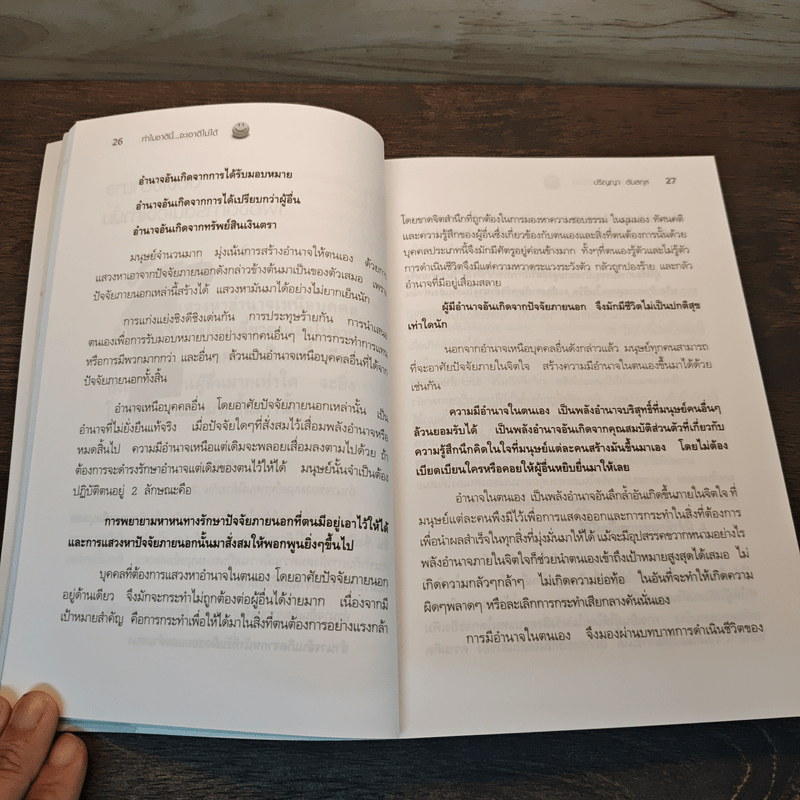 26 ทำไมชาตินี้...จะเอาดีไม่ได้
อำนาจอันเกิดจากการได้รับมอบหมาย
อำนาจอันเกิดจากการได้เปรียบกว่าผู้อื่น
อำนาจอันเกิดจากทรัพย์สินเงินตรา
มนุษย์จำนวนมาก มุ่งเน้นการสร้างอำนาจให้ตนเอง ด้วยการ
แสวงหาเอาจากปัจจัยภายนอกดังกล่าวข้างต้นมาเป็นของตัวเสมอ เพราะ
ปัจจัยภายนอกเหล่านี้สร้างได้ แสวงหามันมาได้อย่างไม่ยากเย็นนัก
การแก่งแย่งชิงดีชิงเด่นกัน การประทุษร้ายกัน การนำเสนอ
ตนเองเพื่อการรับมอบหมายบางอย่างจากคนอื่นๆ ในการกระทำการแทน
หรือการมีพวกมากกว่า และอื่นๆ ล้วนเป็นอำนาจเหนือบุคคลอื่นที่ได้จาก
ปัจจัยภายนอกทั้งสิ้น
อำนาจเหนือบุคคลอื่น โดยอาศัยปัจจัยภายนอกเหล่านั้น เป็น
อำนาจที่ไม่ยั่งยืนแท้จริง เมื่อปัจจัยใดๆที่สั่งสมไว้เสื่อมพลังอำนาจหรือ
หมดสิ้นไป ความมีอำนาจเหนือแต่เดิมจะพลอยเสื่อมลงตามไปด้วย ถ้า
ต้องการจะดำรงรักษาอำนาจแต่เดิมของตนไว้ให้ได้ มนุษย์นั้นจำเป็นต้อง
ปฏิบัติตนอยู่ 2 ลักษณะคือ
การพยายามหาหนทางรักษาปัจจัยภายนอกที่ตนมีอยู่เอาไว้ให้ได้
และการแสวงหาปัจจัยภายนอกนั้นมาสั่งสมให้พอกพูนยิ่งๆขึ้นไป
บุคคลที่ต้องการแสวงหาอำนาจในตนเอง โดยอาศัยปัจจัยภายนอก
อยู่ด้านเดียว จึงมักจะกระทำไม่ถูกต้องต่อผู้อื่นได้ง่ายมาก เนื่องจากมี
เป้าหมายสำคัญ คือการกระทำเพื่อให้ได้มาในสิ่งที่ตนต้องการอย่างแรงกล้า
ปริญญา ตันสกุล 27
โดยขาดจิตสำนึกที่ถูกต้องในการมองหาความชอบธรรม ในมุมมอง ทัศนคติ
และความรู้สึกของผู้อื่นซึ่งเกี่ยวข้องกับตนเองและสิ่งที่ตนต้องการนั้นด้วย
บุคคลประเภทนี้จึงมักมีศัตรูอยู่ค่อนข้างมาก ทั้งๆที่ตนเองรู้ตัวและไม่รู้ตัว
การดำเนินชีวิตจึงมีแต่ความหวาดระแวงระวังตัว กลัวถูกปองร้าย และกลัว
อำนาจที่มีอยู่เสื่อมสลาย
ผู้มีอำนาจอันเกิดจากปัจจัยภายนอก จึงมักมีชีวิตไม่เป็นปกติสุข
เท่าใดนัก
นอกจากอำนาจเหนือบุคคลอื่นดังกล่าวแล้ว มนุษย์ทุกคนสามารถ
ที่จะอาศัยปัจจัยภายในจิตใจ สร้างความมีอำนาจในตนเองขึ้นมาได้ด้วย
เช่นกัน
ความมีอำนาจในตนเอง เป็นพลังอำนาจบริสุทธิ์ที่มนุษย์คนอื่นๆ
ล้วนยอมรับได้ เป็นพลังอำนาจอันเกิดจากคุณสมบัติส่วนตัวที่เกี่ยวกับ
ความรู้สึกนึกคิดในใจที่มนุษย์แต่ละคนสร้างมันขึ้นมาเอง โดยไม่ต้อง
เบียดเบียนใครหรือคอยให้ผู้อื่นหยิบยื่นมาให้เลย
อำนาจในตนเอง เป็นพลังอำนาจอันลึกล้ำอันเกิดขึ้นภายในจิตใจ ที่
มนุษย์แต่ละคนพึงมีไว้เพื่อการแสดงออกและการกระทำในสิ่งที่ต้องการ
เพื่อนำผลสำเร็จในทุกสิ่งที่มุ่งมั่นมาให้ได้ แม้จะมีอุปสรรคขวากหนามอย่างไร
พลังอำนาจภายในจิตใจก็ช่วยนำตนเองเข้าถึงเป้าหมายสูงสุดได้เสมอ ไม่
เกิดความกลัวๆกล้าๆ ไม่เกิดความย่อท้อ ในอันที่จะทำให้เกิดความ
ผิดๆพลาดๆ หรือละเลิกการกระทำเสียกลางคันนั่นเอง
การมีอำนาจในตนเอง จึงมองผ่านบทบาทการดำเนินชีวิตของ